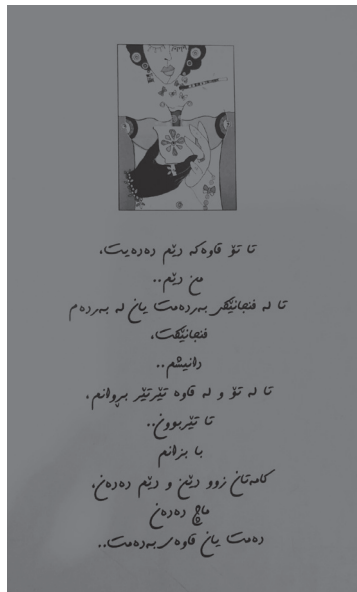 تا تۆ قاوەکە دێم دەدەیت،
من دێم..
تا لە فنجانێکی بەردەمت یان لە بەردەم
فنجانێکت،
دانیشم..
تا لە تۆ و لە قاوە تێرتێر بڕوانم،
تا تێربوون..
با بزانم
کامەتان زوو دێن و دێم دەدەن،
ماچ دەدەن
دەمت یان قاوەی بەدەمت..